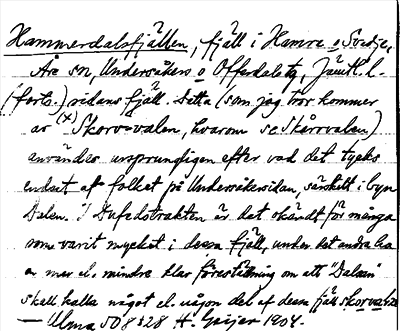 Hammerdalsfjällen, fjäll i Hamre o Svedje,
Åre sn, Undersåkers o Offerdals tg, Jämtl. l.
(forts.) ridans fjäll. Detta (som jag tror kommer
av (x) Skorv-valen, hvarom se Skårvalen)
användes ursprungligen efter vad det tycks
endast af folket på Undersåkersidan, särskilt i byn
Dalen. I Dufedstrakten är det okändt för många
som varit mycket i dessa fjäll, under det andra ha
en mer el. mindre klar föreställning om att "Dalarna"
skall kalla något el. någon del af dessa fjäll skorvaln
— Ulma 508:28 H. Geijer 1904.